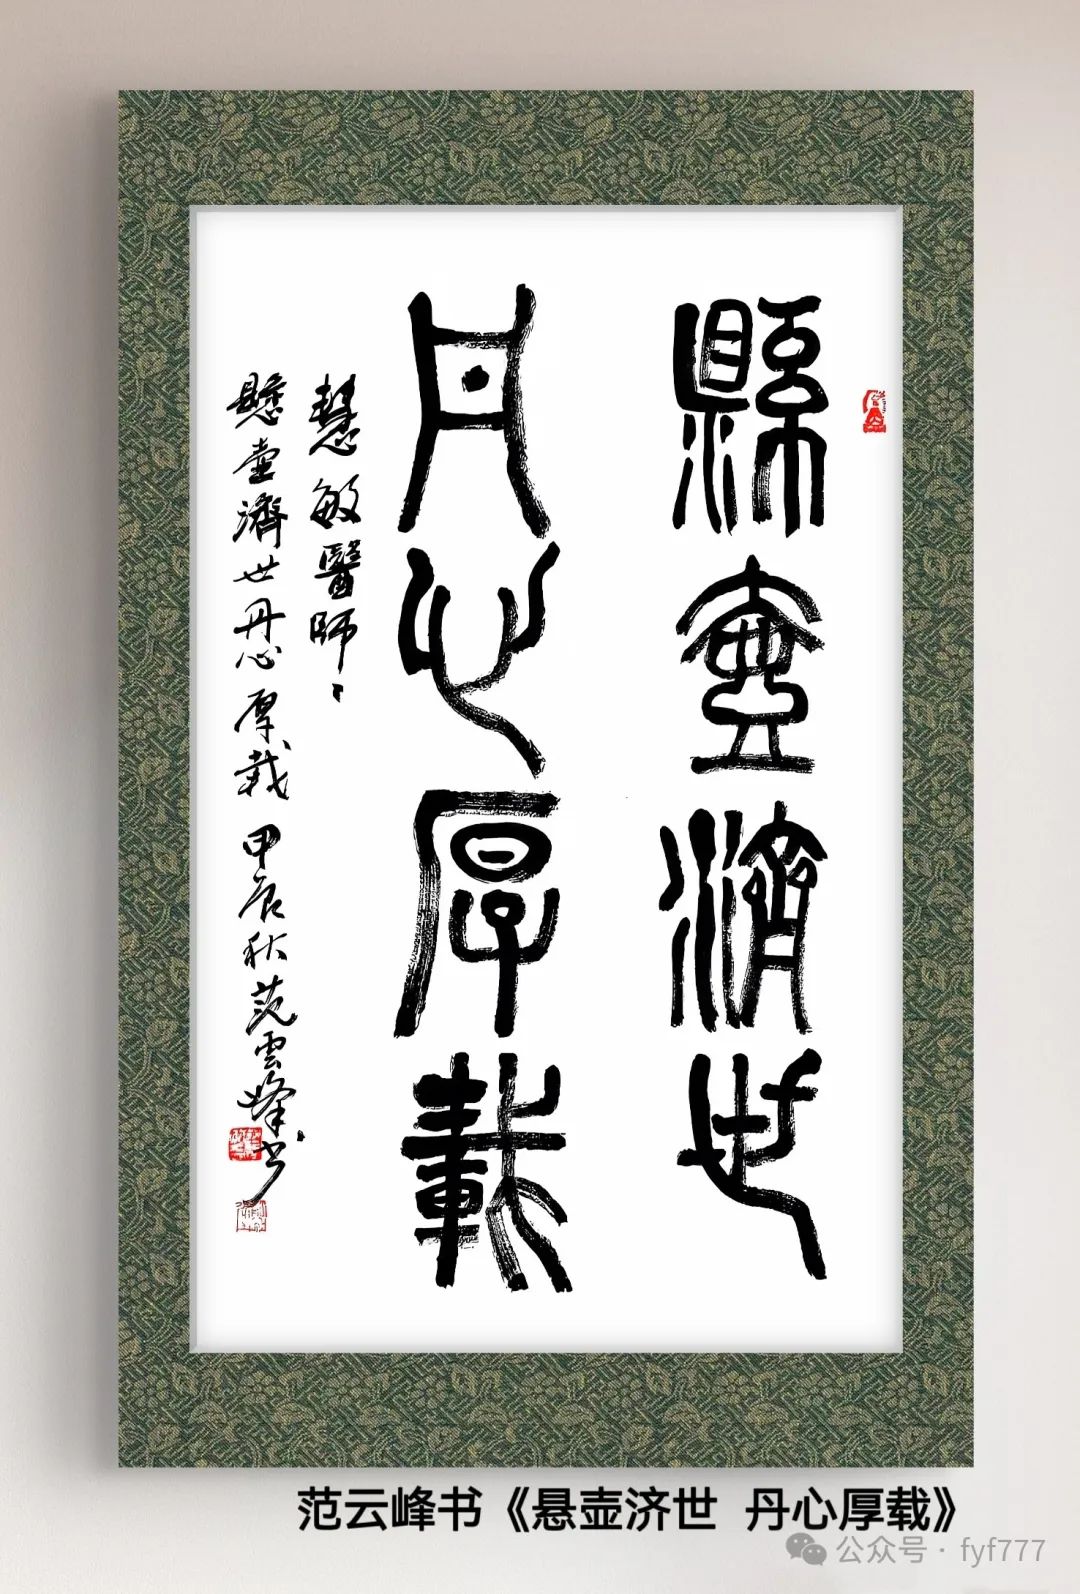 縣壺濟世
丹心厚載
慧敏醫師
懸壺濟世丹心厚載 甲辰秋范雲峰书
范云峰书《悬壶济世 丹心厚载》
公众号 · fyf777